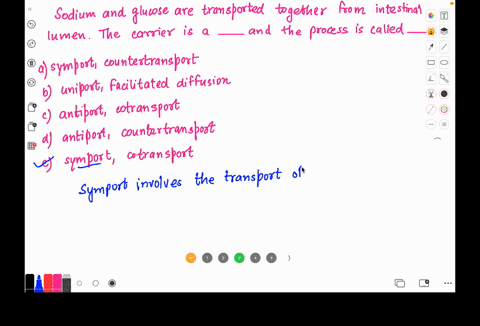 Sodium and glucose are transported together from intestinal
lumen. The carrier is a ___ and the process is called ___
a) symport, countertransport
b) uniport, facilitated diffusion
c) antiport, cotransport
d) antiport, countertransport
e) symport, cotransport
Symport involves the transport of